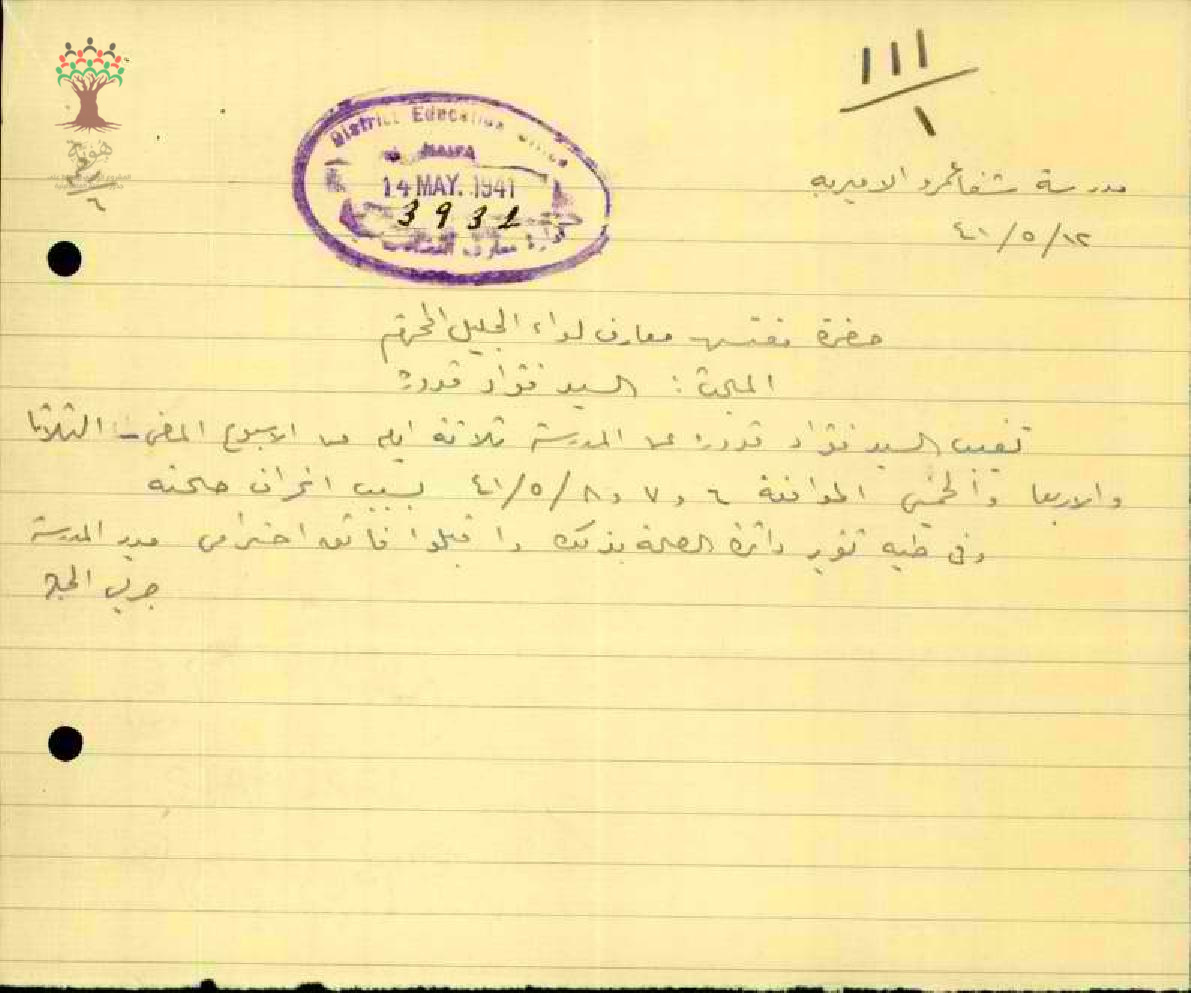 ١١١
١
District Education Office
HAIFA
14 MAY. 1941
3931
مدرسة شفاعمرو الاميرية
١٢/٥/٤١
حضرة مفتش معارف لواء الجليل المحترم
المبحث : السيد فؤاد قدورة
تغيب السيد فؤاد قدورة عن المدرسة ثلاثة ايام من الاسبوع الماضي - الثلاثا
والاربعا والخميس الموافقة ٦ و ٧ و ٨/٥/٤١ بسبب انحراف صحته
وفي طيه تقرير دائرة الصحة بذلك واقبلوا فائق احترامي مدير المدرسة